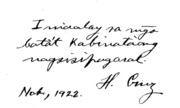 Iniaalay sa mga
batàt Kabinataang
nagsisipagaral.
H. Cruz
Nob., 1922.